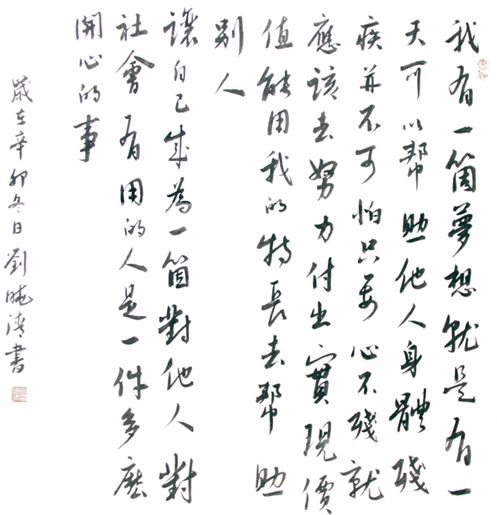 我有一箇夢想就是有一
天可以帮助他人身體殘
疾并不可怕只要心不殘就
應該去努力付出實現價
值能用我的特長去帮助
别人
讓自己成為一箇對他人對
社會有用的人是一件多麽
開心的事
歲在辛卯冬日劉曉清書